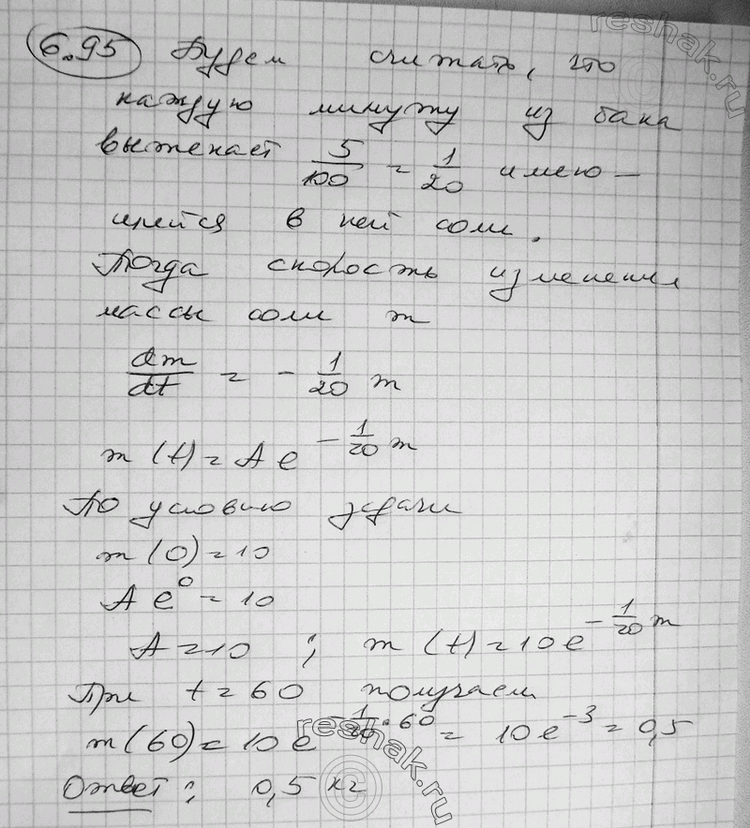 6.95 Будем считать, что
каждую минуту из бака
вытекает 5/100 = 1/20 имею-
щейся в ней соли.
Тогда скорость изменения
массы соли m
dm/dt = - 1/20 m
m(t) = A e^(-1/20 m)
По условию задачи
m(0) = 10
A e^0 = 10
A = 10 ; m(t) = 10 e^(-1/20 m)
При t = 60 получаем
m(60) = 10 e^(-1/20 · 60) = 10 e^-3 = 0,5
Ответ: 0,5 кг
reshak.ru
reshak.ru